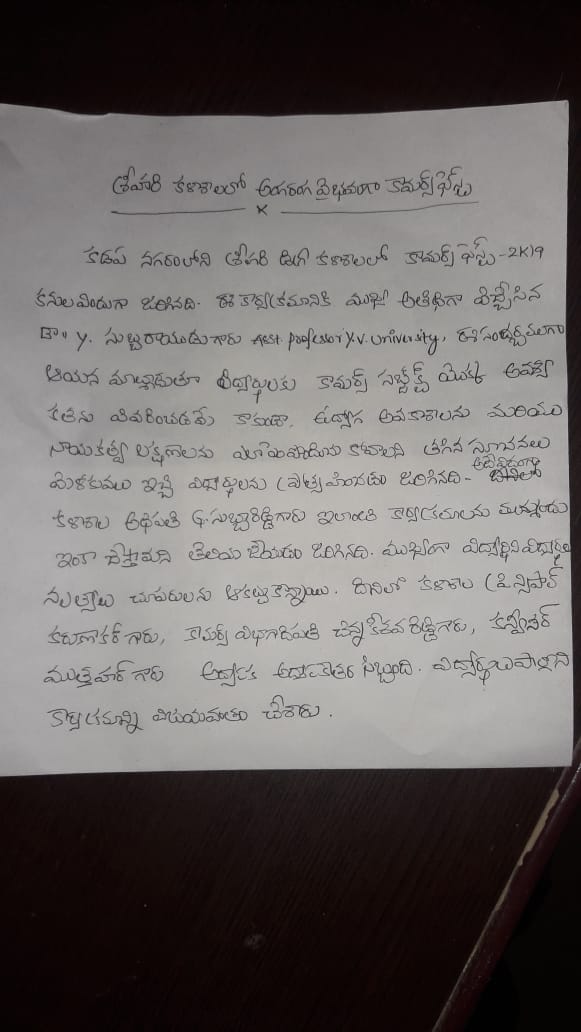 శ్రీహరి కళాశాలలో అంగరంగ వైభవంగా కామర్స్ ఫెస్ట్
x
కడప నగరంలోని శ్రీహరి డిగ్రి కళాశాలలో కామర్స్ ఫెస్ట్ - 2K19
కనులవిందుగా జరిగినది. ఈ కార్యక్రమానికి ముఖ్య అతిథిగా విచ్చేసిన
డా॥ y. సుబ్బరాయుడుగారు Asst. professor Y.V. University, ఈ సందర్భముగా
ఆయన మాట్లాడుతూ విద్యార్థులకు కామర్స్ సబ్జెక్ట్ యొక్క ఆవశ్య
కతను వివరించడమే కాకుండా, ఉద్యోగ అవకాశాలను మరియు
నాయకత్వ లక్షణాలను ఎలా పెంపొందించు కోవాలని తగిన సూచనలు
మెళకువలు ఇచ్చి విద్యార్థులను ప్రోత్సహించడం జరిగినది. అదేవిధంగా
కళాశాల అధిపతి G. సుబ్బారెడ్డిగారు ఇలాంటి కార్యక్రమాలను మున్ముందు
ఇంకా చేస్తామని తెలియ జేయడం జరిగినది. ముఖ్యంగా విద్యార్థిని విద్యార్థుల
నృత్యాలు చూపరులను ఆకట్టుకొన్నాయి. దీనిలో కళాశాల ప్రిన్సిపాల్
కరుణాకర్ గారు, కామర్స్ విభాగాధిపతి చిన్న కేశవ రెడ్డిగారు, కన్వీనర్
ముత్తహర్ గారు అధ్యాపక అధ్యాపకేతర సిబ్బంది. విద్యార్థులు పాల్గొని
కార్యక్రమాన్ని విజయవంతం చేశారు.